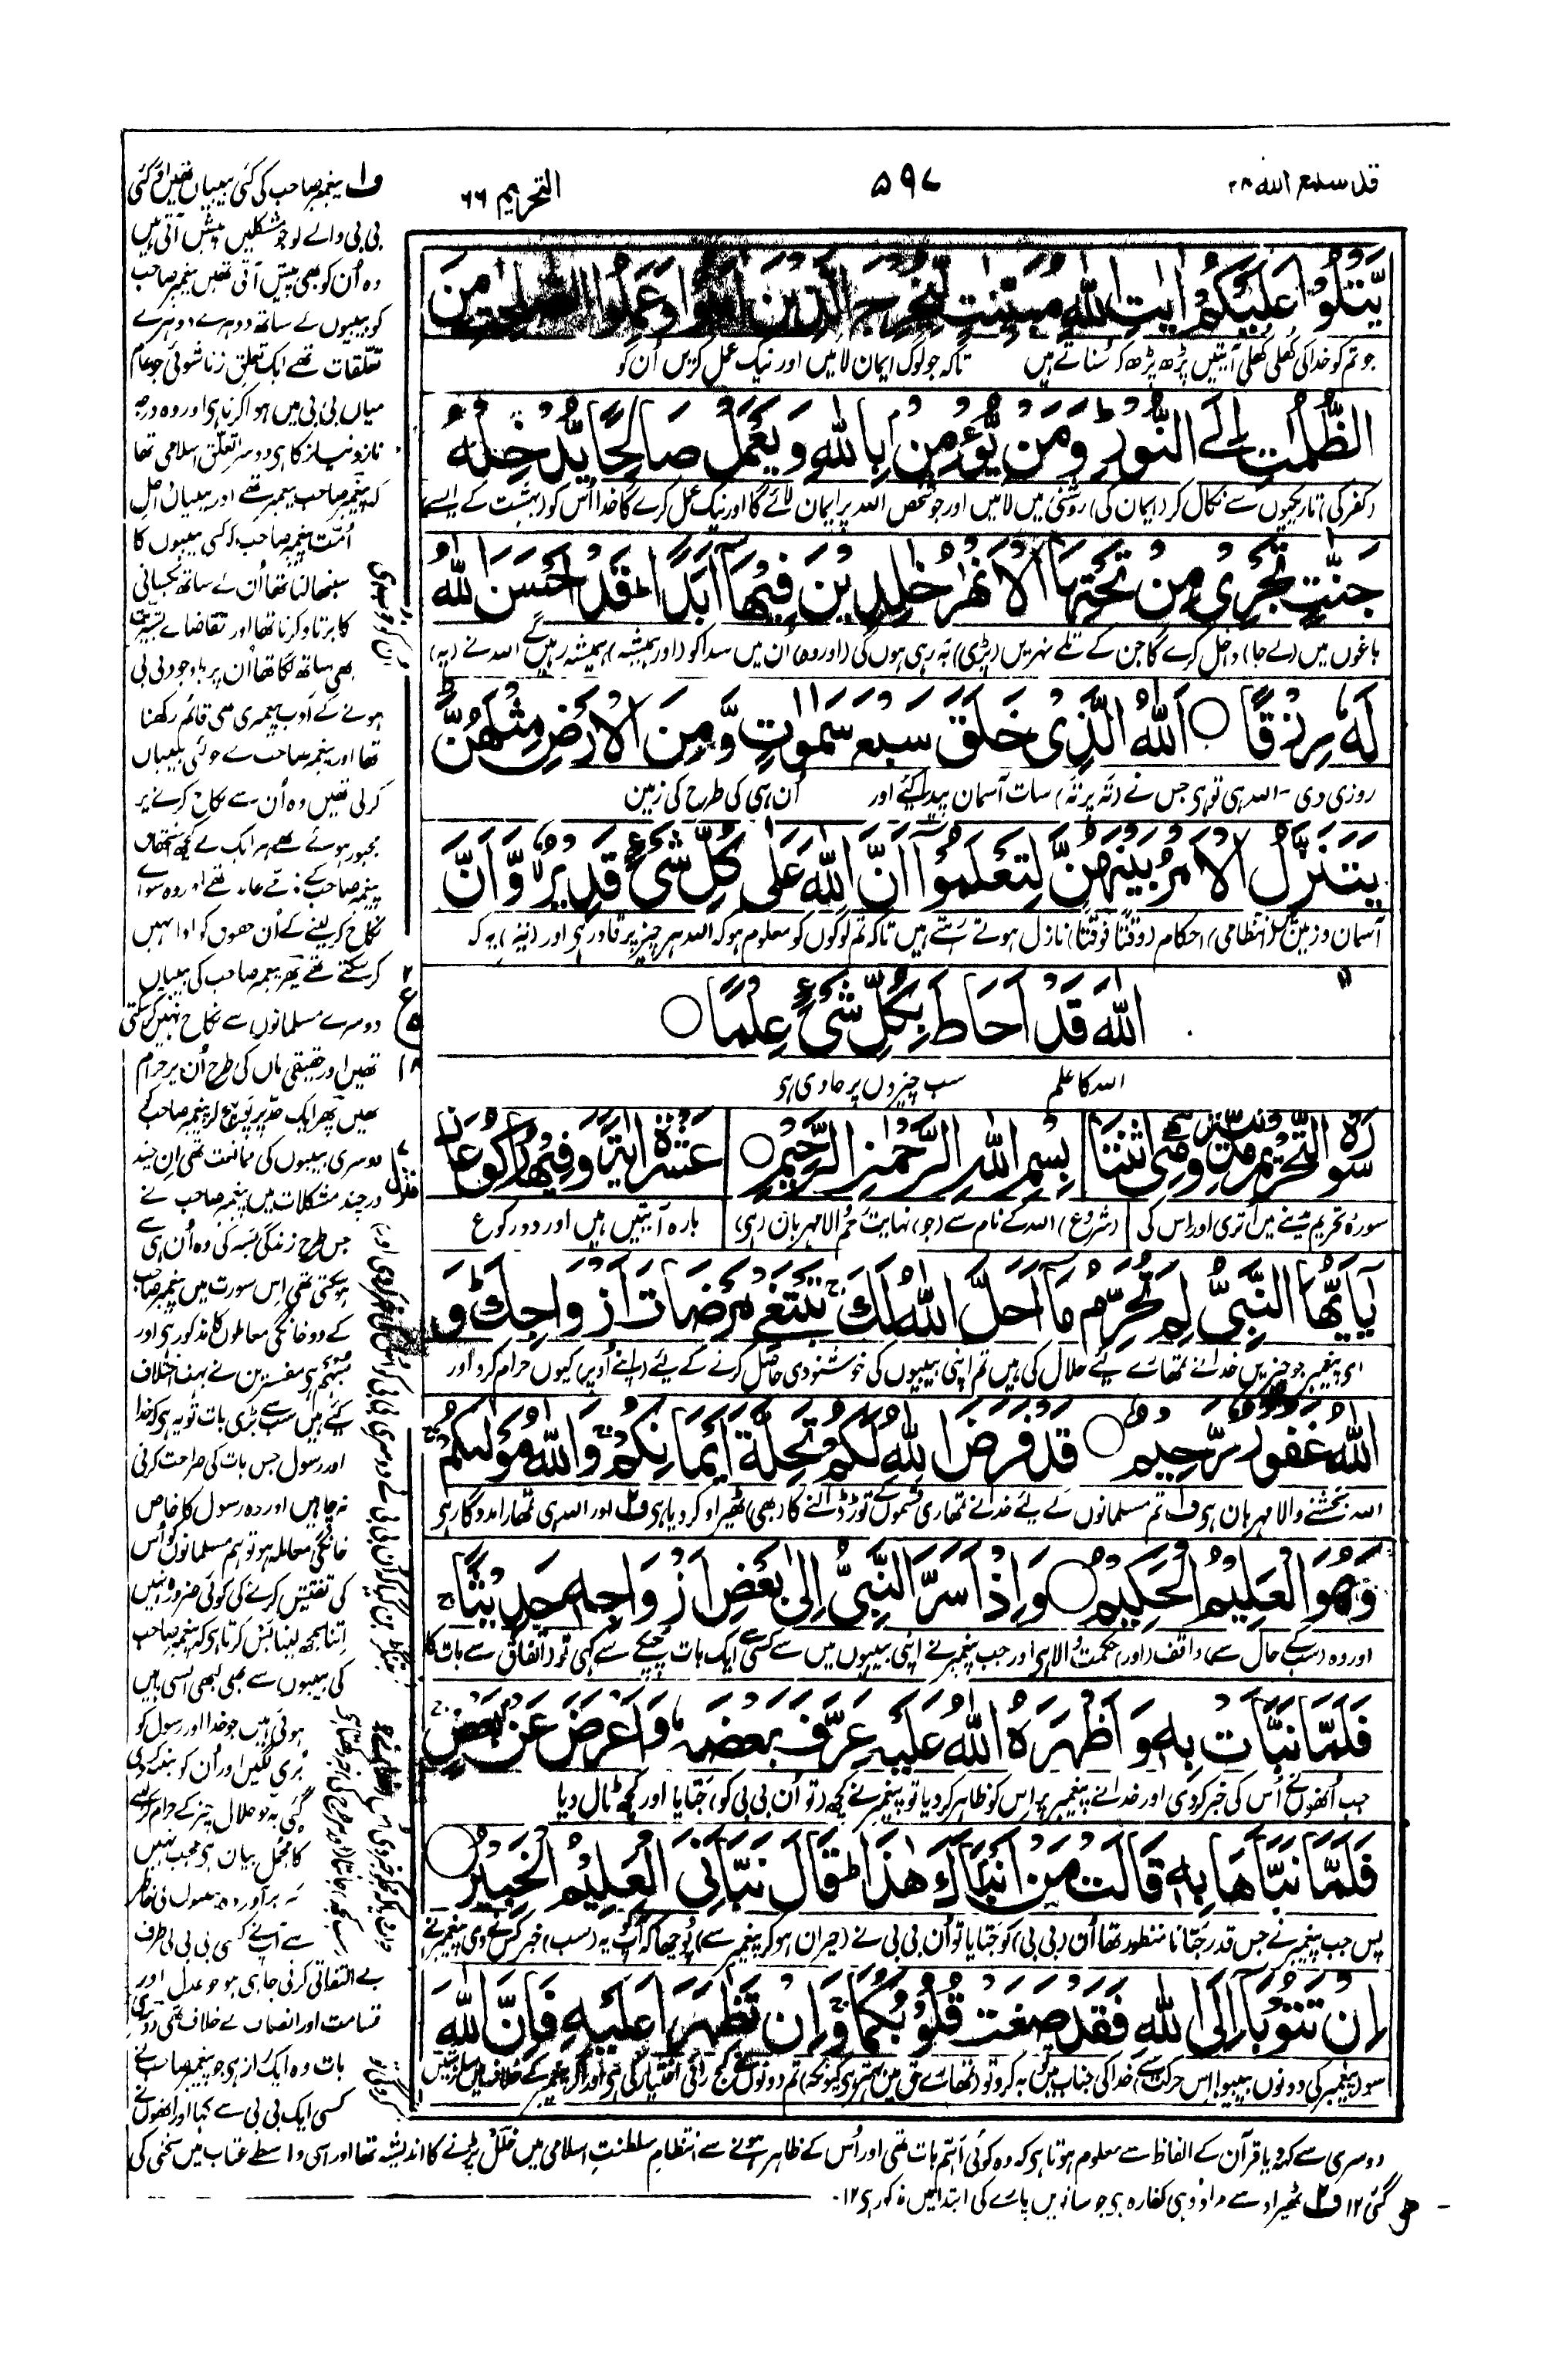 قد سمع الله ۲۸
۵۹۷
التحریم ۶۶
يَّتْلُوْا عَلَيْكُمْ اٰيٰتِ اللّٰهِ مُبَيِّنٰتٍ لِّيُخْرِجَ الَّذِيْنَ اٰمَنُوْا وَعَمِلُوا الصّٰلِحٰتِ مِنَ
جو تم کو خدا کی کھلی کھلی آیتیں پڑھ پڑھ کر سناتے ہیں تاکہ جو لوگ ایمان لائیں اور نیک عمل کریں اُن کو
الظُّلُمٰتِ اِلَى النُّوْرِ ؕ وَمَنْ يُّؤْمِنْۢ بِاللّٰهِ وَيَعْمَلْ صَالِحًا يُّدْخِلْهُ
(کفر کی) تاریکیوں سے نکال کر (ایمان کی) روشنی میں لائیں اور جو شخص اللہ پر ایمان لائے گا اور نیک عمل کرے گا خدا اُس کو (بہشت کے) ایسے
جَنّٰتٍ تَجْرِيْ مِنْ تَحْتِهَا الْاَنْهٰرُ خٰلِدِيْنَ فِيْهَآ اَبَدًا ؕ قَدْ اَحْسَنَ اللّٰهُ
باغوں میں (لے جا) داخل کرے گا جن کے تلے نہریں (پڑی) بہ رہی ہوں گی (اور وہ) اُن میں سدا کو (اور ہمیشہ) ہمیشہ رہیں گے اللہ نے (یہ)
لَهٗ رِزْقًا ○ اَللّٰهُ الَّذِيْ خَلَقَ سَبْعَ سَمٰوٰتٍ وَّمِنَ الْاَرْضِ مِثْلَهُنَّ
روزی دی - اللہ ہی تو ہی جس نے (تہ بر تہ) سات آسمان پیدا کئے اور اُن ہی کی طرح کی زمین
يَتَنَزَّلُ الْاَمْرُ بَيْنَهُنَّ لِتَعْلَمُوْٓا اَنَّ اللّٰهَ عَلٰى كُلِّ شَيْءٍ قَدِيْرٌ ۙ وَّاَنَّ
آسمان و زمین میں (انتظامی) احکام (وقتاً فوقتاً) نازل ہوتے رہتے ہیں تاکہ تم لوگوں کو معلوم ہو کہ اللہ ہر چیز پر قادر ہی اور (نیز) یہ کہ
اللّٰهَ قَدْ اَحَاطَ بِكُلِّ شَيْءٍ عِلْمًا ○
اللہ کا علم سب چیزوں پر حاوی ہی
سورۃ التحریم مدنیۃ وھی اثنتا
بِسْمِ اللّٰهِ الرَّحْمٰنِ الرَّحِيْمِ ○
عشرۃ اٰیۃ وفیھا رکوعان
سورۂ تحریم مدینے میں اُتری اور اس کی
(شروع) اللہ کے نام سے (جو) نہایت رحم والا مہربان (ہی)
بارہ آیتیں ہیں اور دو رکوع
يٰٓاَيُّهَا النَّبِيُّ لِمَ تُحَرِّمُ مَآ اَحَلَّ اللّٰهُ لَكَ ۚ تَبْتَغِيْ مَرْضَاتَ اَزْوَاجِكَ ؕ وَ
ای پیغمبر جو چیزیں خدا نے تمھارے لیے حلال کی ہیں تم اپنی بیبیوں کی خوشنودی حاصل کرنے کے لیے (اپنے اُوپر) کیوں حرام کرو اور
اللّٰهُ غَفُوْرٌ رَّحِيْمٌ ○ قَدْ فَرَضَ اللّٰهُ لَكُمْ تَحِلَّةَ اَيْمَانِكُمْ ۚ وَاللّٰهُ مَوْلٰىكُمْ ۚ
اللہ بخشنے والا مہربان ہی ف۱ تم مسلمانوں کے لیے خدا نے تمھاری قسموں کے توڑ ڈالنے کا (بھی) ٹھیراو کر دیا ہی ف۲ اور اللہ ہی تمھارا مددگار ہی
وَهُوَ الْعَلِيْمُ الْحَكِيْمُ ○ وَاِذْ اَسَرَّ النَّبِيُّ اِلٰى بَعْضِ اَزْوَاجِهٖ حَدِيْثًا ۚ
اور وہ (سب کے حال سے) واقف (اور) حکمت والا ہی اور جب پیغمبر نے اپنی بیبیوں میں سے کسی سے ایک بات چپکے سے کہی تو
فَلَمَّا نَبَّاَتْ بِهٖ وَاَظْهَرَهُ اللّٰهُ عَلَيْهِ عَرَّفَ بَعْضَهٗ وَاَعْرَضَ عَنْۢ بَعْضٍ ۚ
جب اُنھوں نے اُس کی خبر کر دی اور خدا نے پیغمبر پر اس کو ظاہر کر دیا تو پیغمبر نے کچھ (تو اُن بی بی کو) جتایا اور کچھ ٹال دیا
فَلَمَّا نَبَّاَهَا بِهٖ قَالَتْ مَنْ اَنْۢبَاَكَ هٰذَا ؕ قَالَ نَبَّاَنِيَ الْعَلِيْمُ الْخَبِيْرُ ○
پس جب پیغمبر نے جس قدر جتانا منظور تھا اُن (بی بی) کو جتایا تو اُن بی بی نے (حیران ہو کر پیغمبر سے) پوچھا کہ آپ کو یہ (سب) خبر کس نے دی پیغمبر نے
اِنْ تَتُوْبَآ اِلَى اللّٰهِ فَقَدْ صَغَتْ قُلُوْبُكُمَا ۚ وَاِنْ تَظٰهَرَا عَلَيْهِ فَاِنَّ اللّٰهَ
سو (پیغمبر کی دونوں بیبیو!) اس حرکت سے خدا کی جناب میں توبہ کرو تو
ف۱ پیغمبر صاحب کی کئی بیبیاں تھیں اور کئی
بی بی والے کو جو مشکلیں پیش آتی ہیں
وہ اُن کو بھی پیش آتی تھیں پیغمبر صاحب
کو بیبیوں کے ساتھ دوہرے دوہرے
تعلقات تھے ایک تعلق زنا شوئی جو عام
میاں بی بی میں ہوا کرتا ہی اور وہ درجہ
ناز و نیاز کا ہی دوسرا تعلق اسلامی تھا
کہ پیغمبر صاحب پیغمبر تھے اور بیبیاں اہل
اُمت پیغمبر صاحب کو کئی بیبیوں کا
سنبھالنا تھا اُن کے ساتھ یکسانی
کا برتاو کرنا تھا اور تقاضائے بشریت
بھی ساتھ لگا تھا اُن پر باوجود بی بی
ہونے کے ادب پیغمبری بھی قائم رکھنا
تھا اور پیغمبر صاحب نے جو کئی بیبیاں
کر لی تھیں وہ اُن سے نکاح کرنے پر
مجبور ہوئے تھے ہر ایک کے کچھ
نکاح کر لینے کے اُن حقوں کو ادا نہیں
کر سکتے تھے پھر پیغمبر صاحب کی بیبیاں
دوسرے مسلمانوں سے نکاح نہیں کر سکتی
تھیں اور حقیقی ماں کی طرح اُن پر حرام
تھیں پھر ایک حد پر پہنچ کر پیغمبر صاحب کے
دوسری بیبیوں کی ممانعت تھی ان چند
در چند مشکلات میں پیغمبر صاحب نے
جس طرح زندگی بسر کی وہ اُن ہی سے
ہو سکتی تھی اس سورت میں پیغمبر صاحب
کے دو خانگی معاملوں کا مذکور ہی اور
مبہم ہی مفسرین نے بہت اختلاف
کیے ہیں سب سے بڑی بات تو یہ ہی کہ خدا
اور رسول جس بات کی صراحت کرنی
نہ چاہیں اور وہ رسول کا خاص
خانگی معاملہ ہو تو ہم مسلمانوں کو اُس
کی تفتیش کرنے کی کوئی ضرورت نہیں
اتنا سمجھ لینا بس کرتا ہی کہ پیغمبر صاحب
کی بیبیوں سے بھی کبھی ایسی باتیں
ہوتی ہیں جو خدا اور رسول کو
بُری لگیں اور اُن کو
کا مجمل بیان ہی عجب نہیں
بے التفاتی کرنی چاہی ہو جو عدل اور
قسامت اور انصاف کے خلاف تھی دوسری
بات وہ ایک راز ہی جو پیغمبر صاحب نے
کسی ایک بی بی سے کہا اور انھوں نے
دوسری سے کہ دیا قرآن کے الفاظ سے معلوم ہوتا ہی کہ وہ کوئی اہم بات تھی اور اُس کے ظاہر ہونے سے انتظام سلطنت اسلامی میں خلل پڑنے کا اندیشہ تھا اور اسی واسطے عتاب میں سختی کی
گئی ۱۲ ف۲ ٹھیراو سے مراد وہی کفارہ ہی جو ساتویں پارے کی ابتدا میں مذکور ہی ۱۲